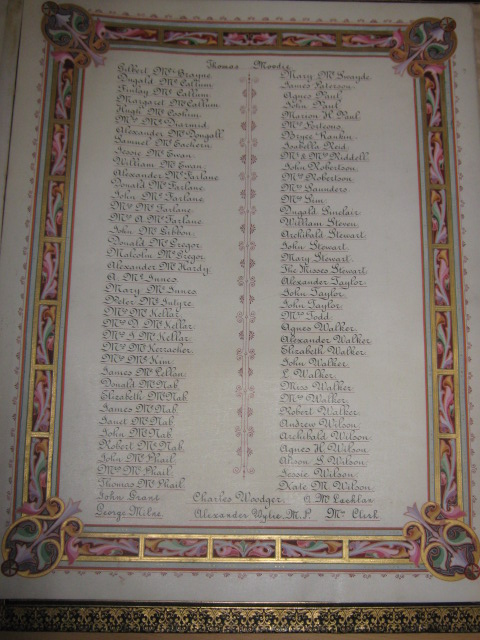 Thomas Moodie
Gilbert Mc
Dugald McCallum
Finlay McCallum
Margaret McCallum
Hugh McCaskin
Mrs McDiarmid
Alexander McDougall
Samuel McEachern
Jessie McEwan
William McEwan
Alexander McFarlane
Donald McFarlane
John McFarlane
Mrs McFarlane
Mrs A. McFarlane
John McGibbon
Donald McGregor
Malcolm McGregor
Alexander McHardy
A. McInnes
Mary McInnes
Peter McIntyre
Mrs McKellar
Mrs D. McKellar
Mrs J. McKellar
Mrs McKerracher
Mrs McKim
James McLellan
Donald McNab
Elizabeth McNab
James McNab
Janet McNab
John McNab
Robert McNab
John McPhail
Mrs McPhail
Thomas McPhail
Mary McSwyde
James Paterson
Agnes Paul
John Paul
Marion H. Paul
Mrs Porteous
Bryce Rankin
Isabella Reid
Mr & Mrs Riddell
John Robertson
Mrs Robertson
Mrs Saunders
Mrs Sim
Dugald Sinclair
William Steven
Archibald Stewart
John Stewart
Mary Stewart
The Misses Stewart
Alexander Taylor
John Taylor
John Taylor
Mrs Todd
Agnes Walker
Alexander Walker
Elizabeth Walker
John Walker
L. Walker
Miss Walker
Mrs Walker
Robert Walker
Andrew Wilson
Archibald Wilson
Agnes H. Wilson
Alison S. Wilson
Jessie Wilson
Kate M. Wilson
John Grant Charles Woodger McLachlan
George Milne Alexander Wylie M.P. Clerk